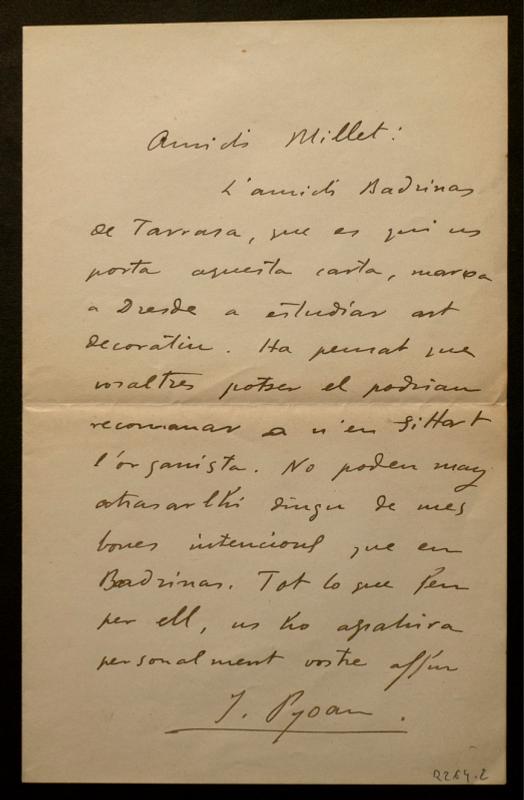 Amich Millet:
L'amich Badrinas
de Tarrasa, que es qui us
porta aquesta carta, marxa
a Dresde a estudiar art
decoratiu. Ha pensat que
vosaltres potser el podrian
recomanar a n'en Sittart
l'organista. No poden may
atrasarlhi dingu de mes
bones intencions que en
Badrinas. Tot lo que feu
per ell, us ho agrahira
personalment vostre affm
J. Pijoan.
R264.2